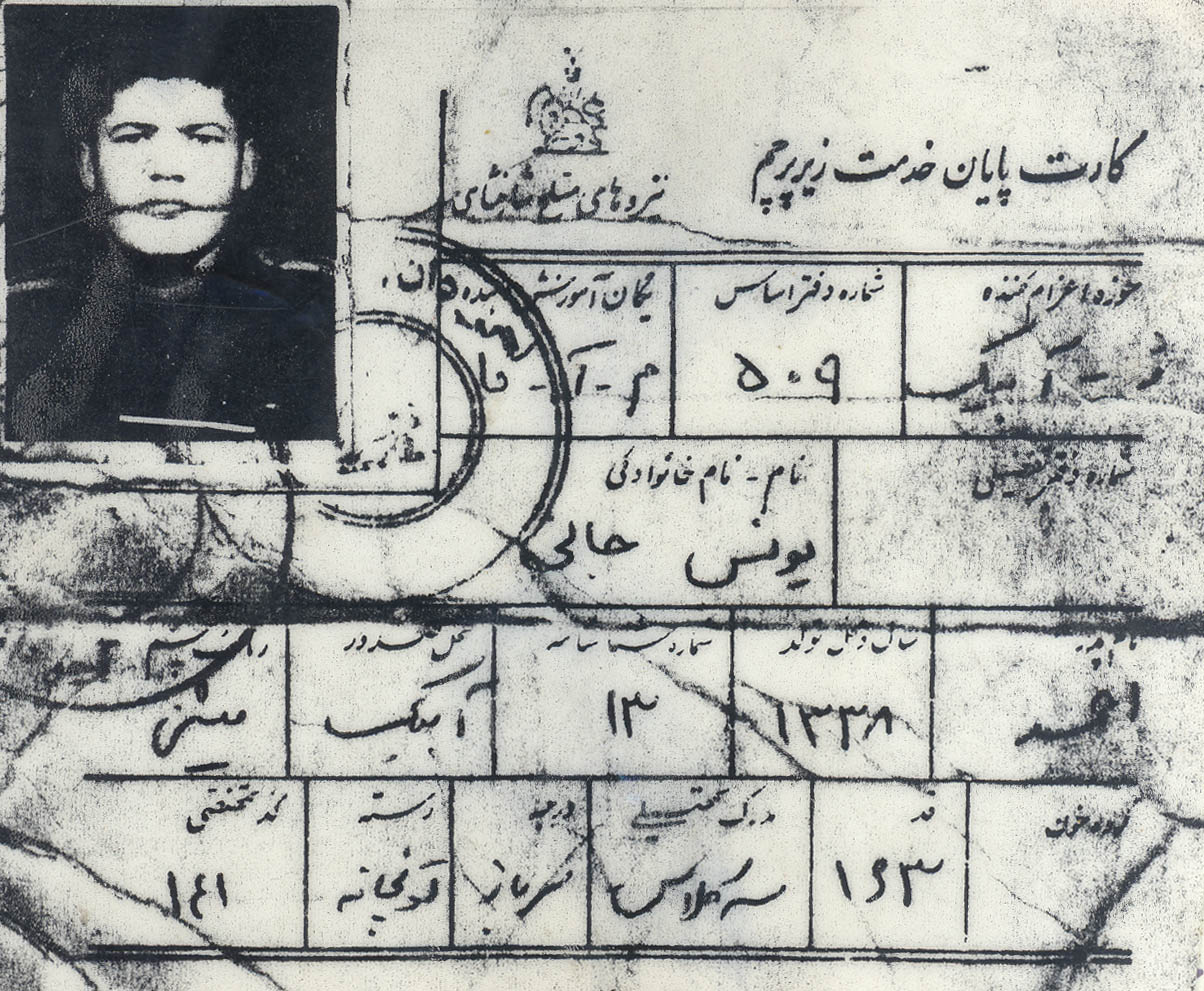 کارت پایان خدمت زیر پرچم
نیروهای مسلح شاهنشاهی
حوزه اعزام کننده
شماره دفتر اساس
یگان آموزش
آبیک
۵۰۹
م - آ -
شماره دفتر تفصیلی
نام - نام خانوادگی
یونس جالی
نام پدر
سال و محل تولد
شماره شناسنامه
محل صدور
رنگ چشم
احمد
۱۳۳۸
۱۳
آبیک
میشی
گروه خون
قد
مدرک تحصیلی
درجه
رسته
کد تخصصی
۱۶۳
سه کلاس
سرباز
توپخانه
۱۴۱